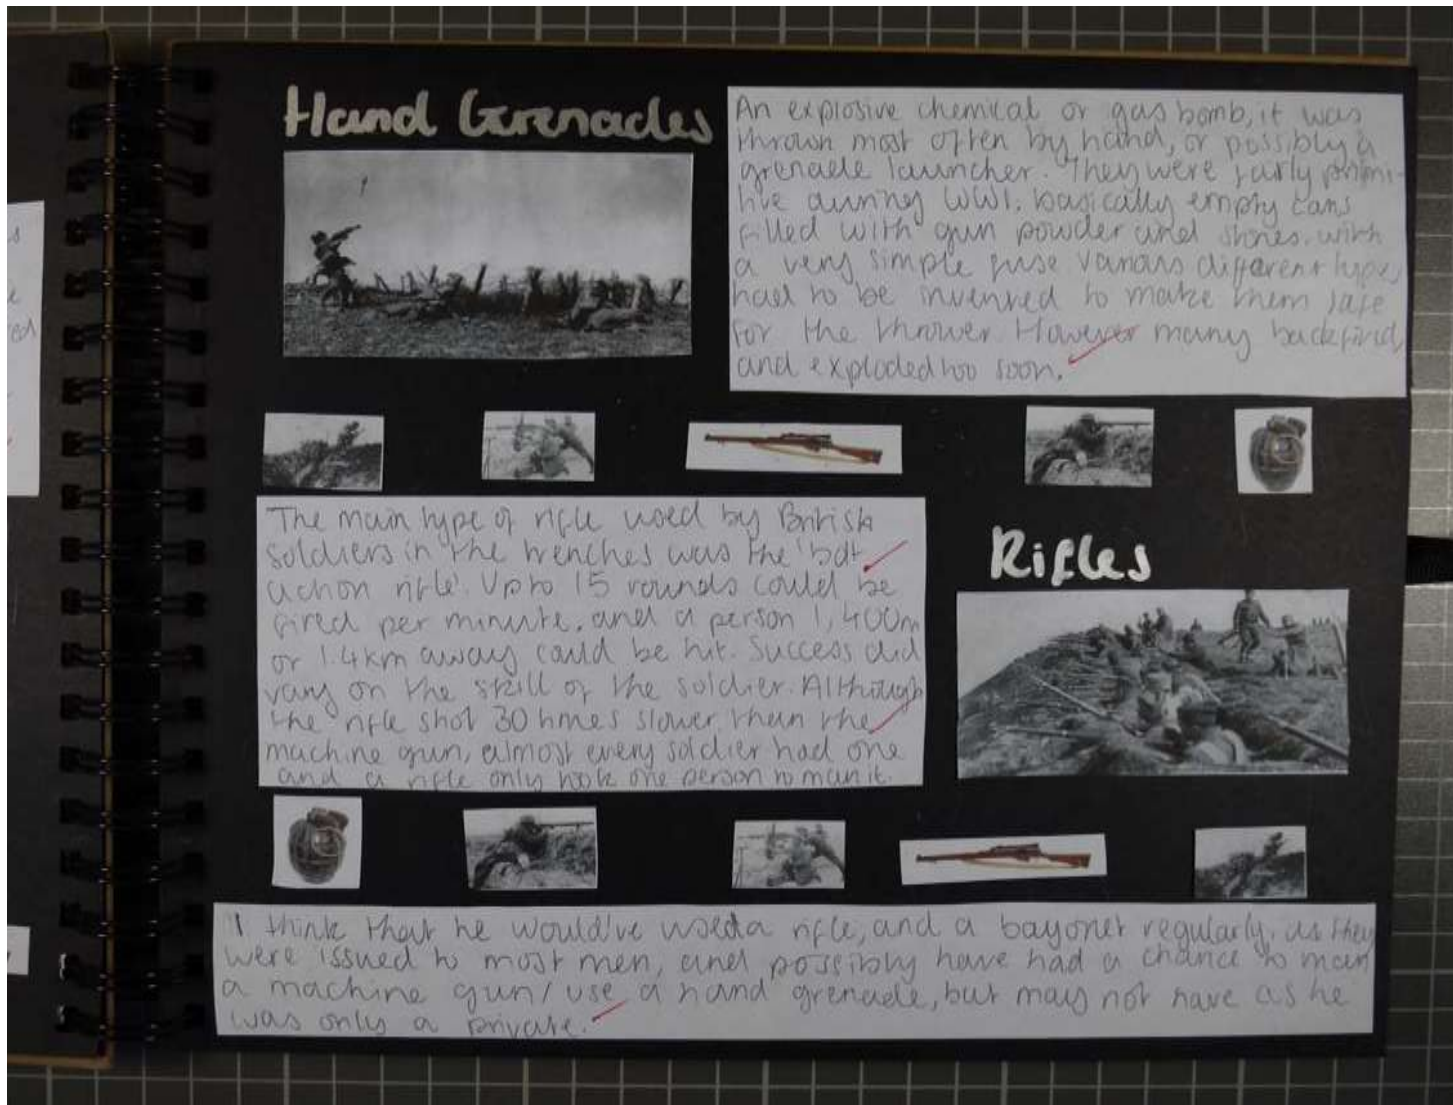 Hand Grenades
An explosive chemical or gas bomb, it was
thrown most often by hand, or possibly a
grenade launcher. They were fairly primi-
tive during WW1. basically empty cans
filled with gun powder and stones. with
a very simple fuse. Various different types
had to be invented to make them safe
for the thrower. However many backfired,
and exploded too soon.
The main type of rifle used by British
soldiers in the trenches was the 'bolt
action rifle'. Up to 15 rounds could be
fired per minute, and a person 1,400m
or 1.4km away could be hit. Success did
vary on the skill of the soldier. Although
the rifle shot 30 times slower than the
machine gun, almost every soldier had one
and a rifle only took one person to man it.
Rifles
I think that he would've used a rifle, and a bayonet regularly, as they
were issued to most men, and possibly have had a chance to man
a machine gun/use a hand grenade, but may not have as he
was only a private.